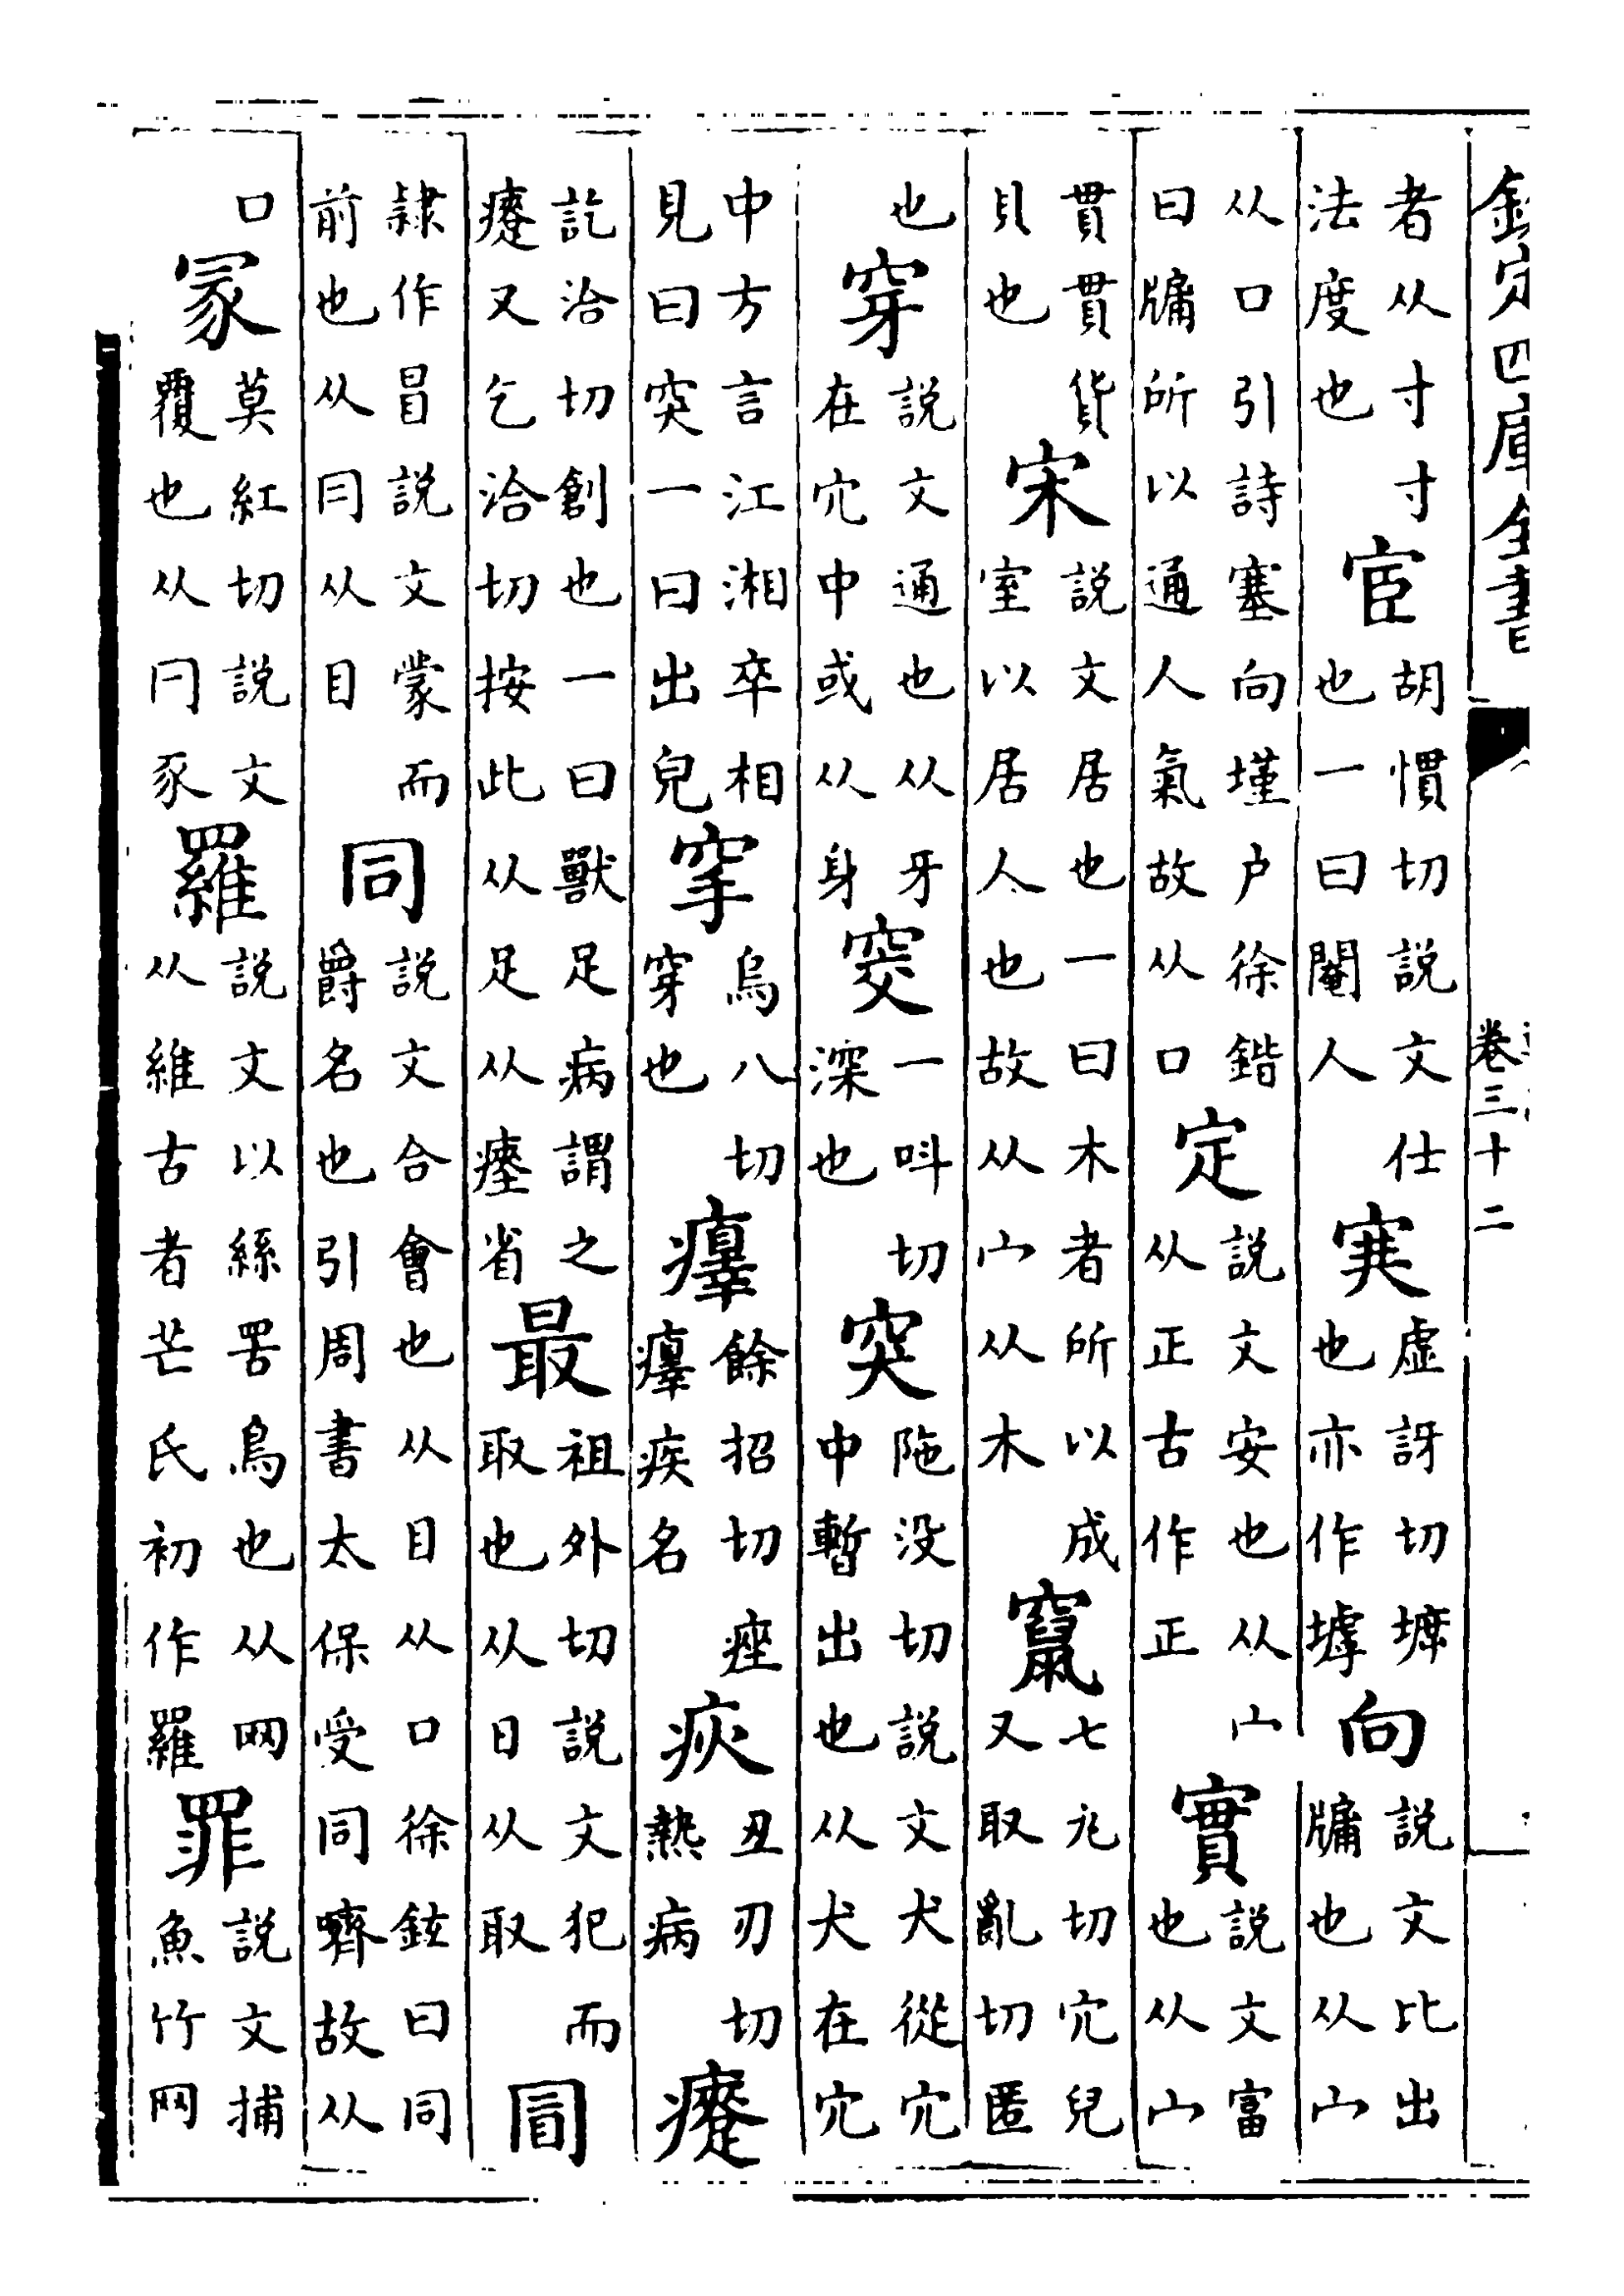 欽定四庫全書　卷三十二
者从寸寸法度也宦胡慣切説文仕也一曰閹人虚訝切也亦作向説文比出牖也从宀
从口引詩塞向墐户徐鍇曰牖所以通人氣故从口定説文安也从宀从正古作正實説文富也从宀
貫貫貨貝也宋説文居也一曰木者所以成室以居人也故从宀从木竄七切穴皃又取亂切匿
也穿説文通也从牙在穴中或从身窔一呌切深也突陁没切説文犬從穴中暫出也从犬在穴
中方言江湘卒相見曰突一曰出皃穵烏八切穿也餘招切痤疾名疢丑刃切熱病
訖洽切創也一曰獸足病謂之又乞洽切按此从足从省最祖外切説文犯而取也从日从取冒
隷作冒説文蒙而前也从冃从目同説文合會也从冃从口徐鉉曰同爵名也引周書太保受同嚌故从
口冡莫紅切説文覆也从冃豕羅説文以絲罟鳥也从网从維古者芒氏初作羅罪説文捕魚竹网